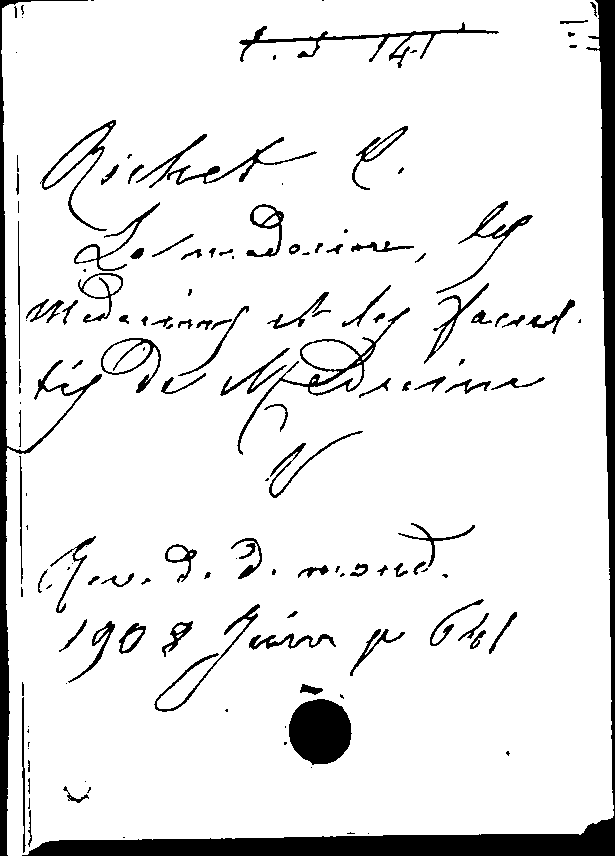 Richet C.
La medecine, les
medecins et les facul-
tés de Medecine
V
Rev. d. d. mond.
1908 p 641